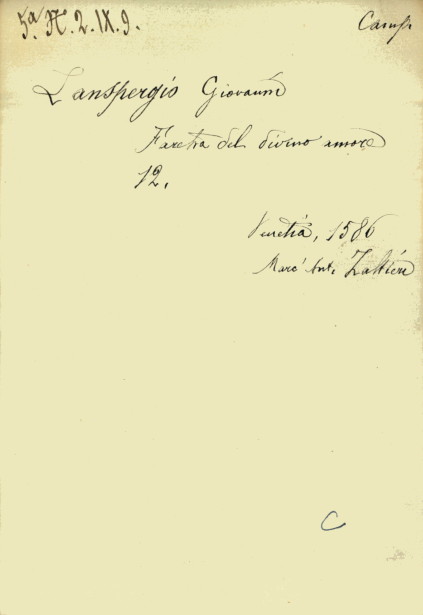 5ª N. 2. IX. 9.
Camp
Lanspergio Giovanni
Faretra del divino amore
12.
Venetia, 1586
Marc' Ant. Zaltieri
C